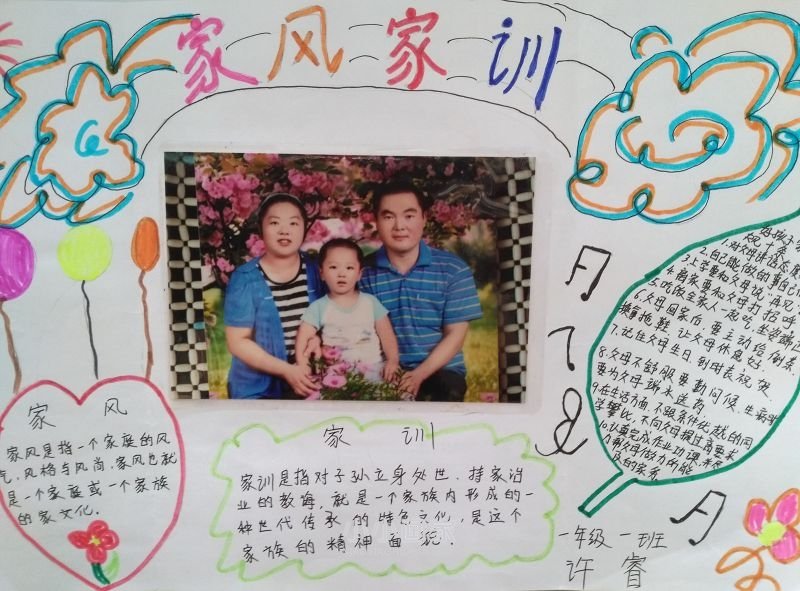 家风家训
家风
家风是指一个家庭的风
气、风格与风尚。家风也就
是一个家庭或一个家族
的家文化。
家训
家训是指对子孙立身处世、持家治
业的教诲，就是一个家族内形成的一
种世代传承的特色文化，是这个
家族的精神面貌。
好孩子
规十条
1.对父母讲话态度
2.自己能做的事自己
3.上学要和父母说：再见
4.回家要和父母打招呼
5.吃饭全家人一起吃，坐姿端正
6.父母回家后，要主动给倒茶
换拿拖鞋 让父母休息好。
7.记住父母生日，到时表祝贺
8.父母不舒服要勤问候、生病时
要为父母端水送药
9.在生活方面，不跟条件优越的同
学攀比，不向父母提过高要求
10.认真完成作业功课，并尽
力帮父母做力所能
及的家务
一年级一班
许睿